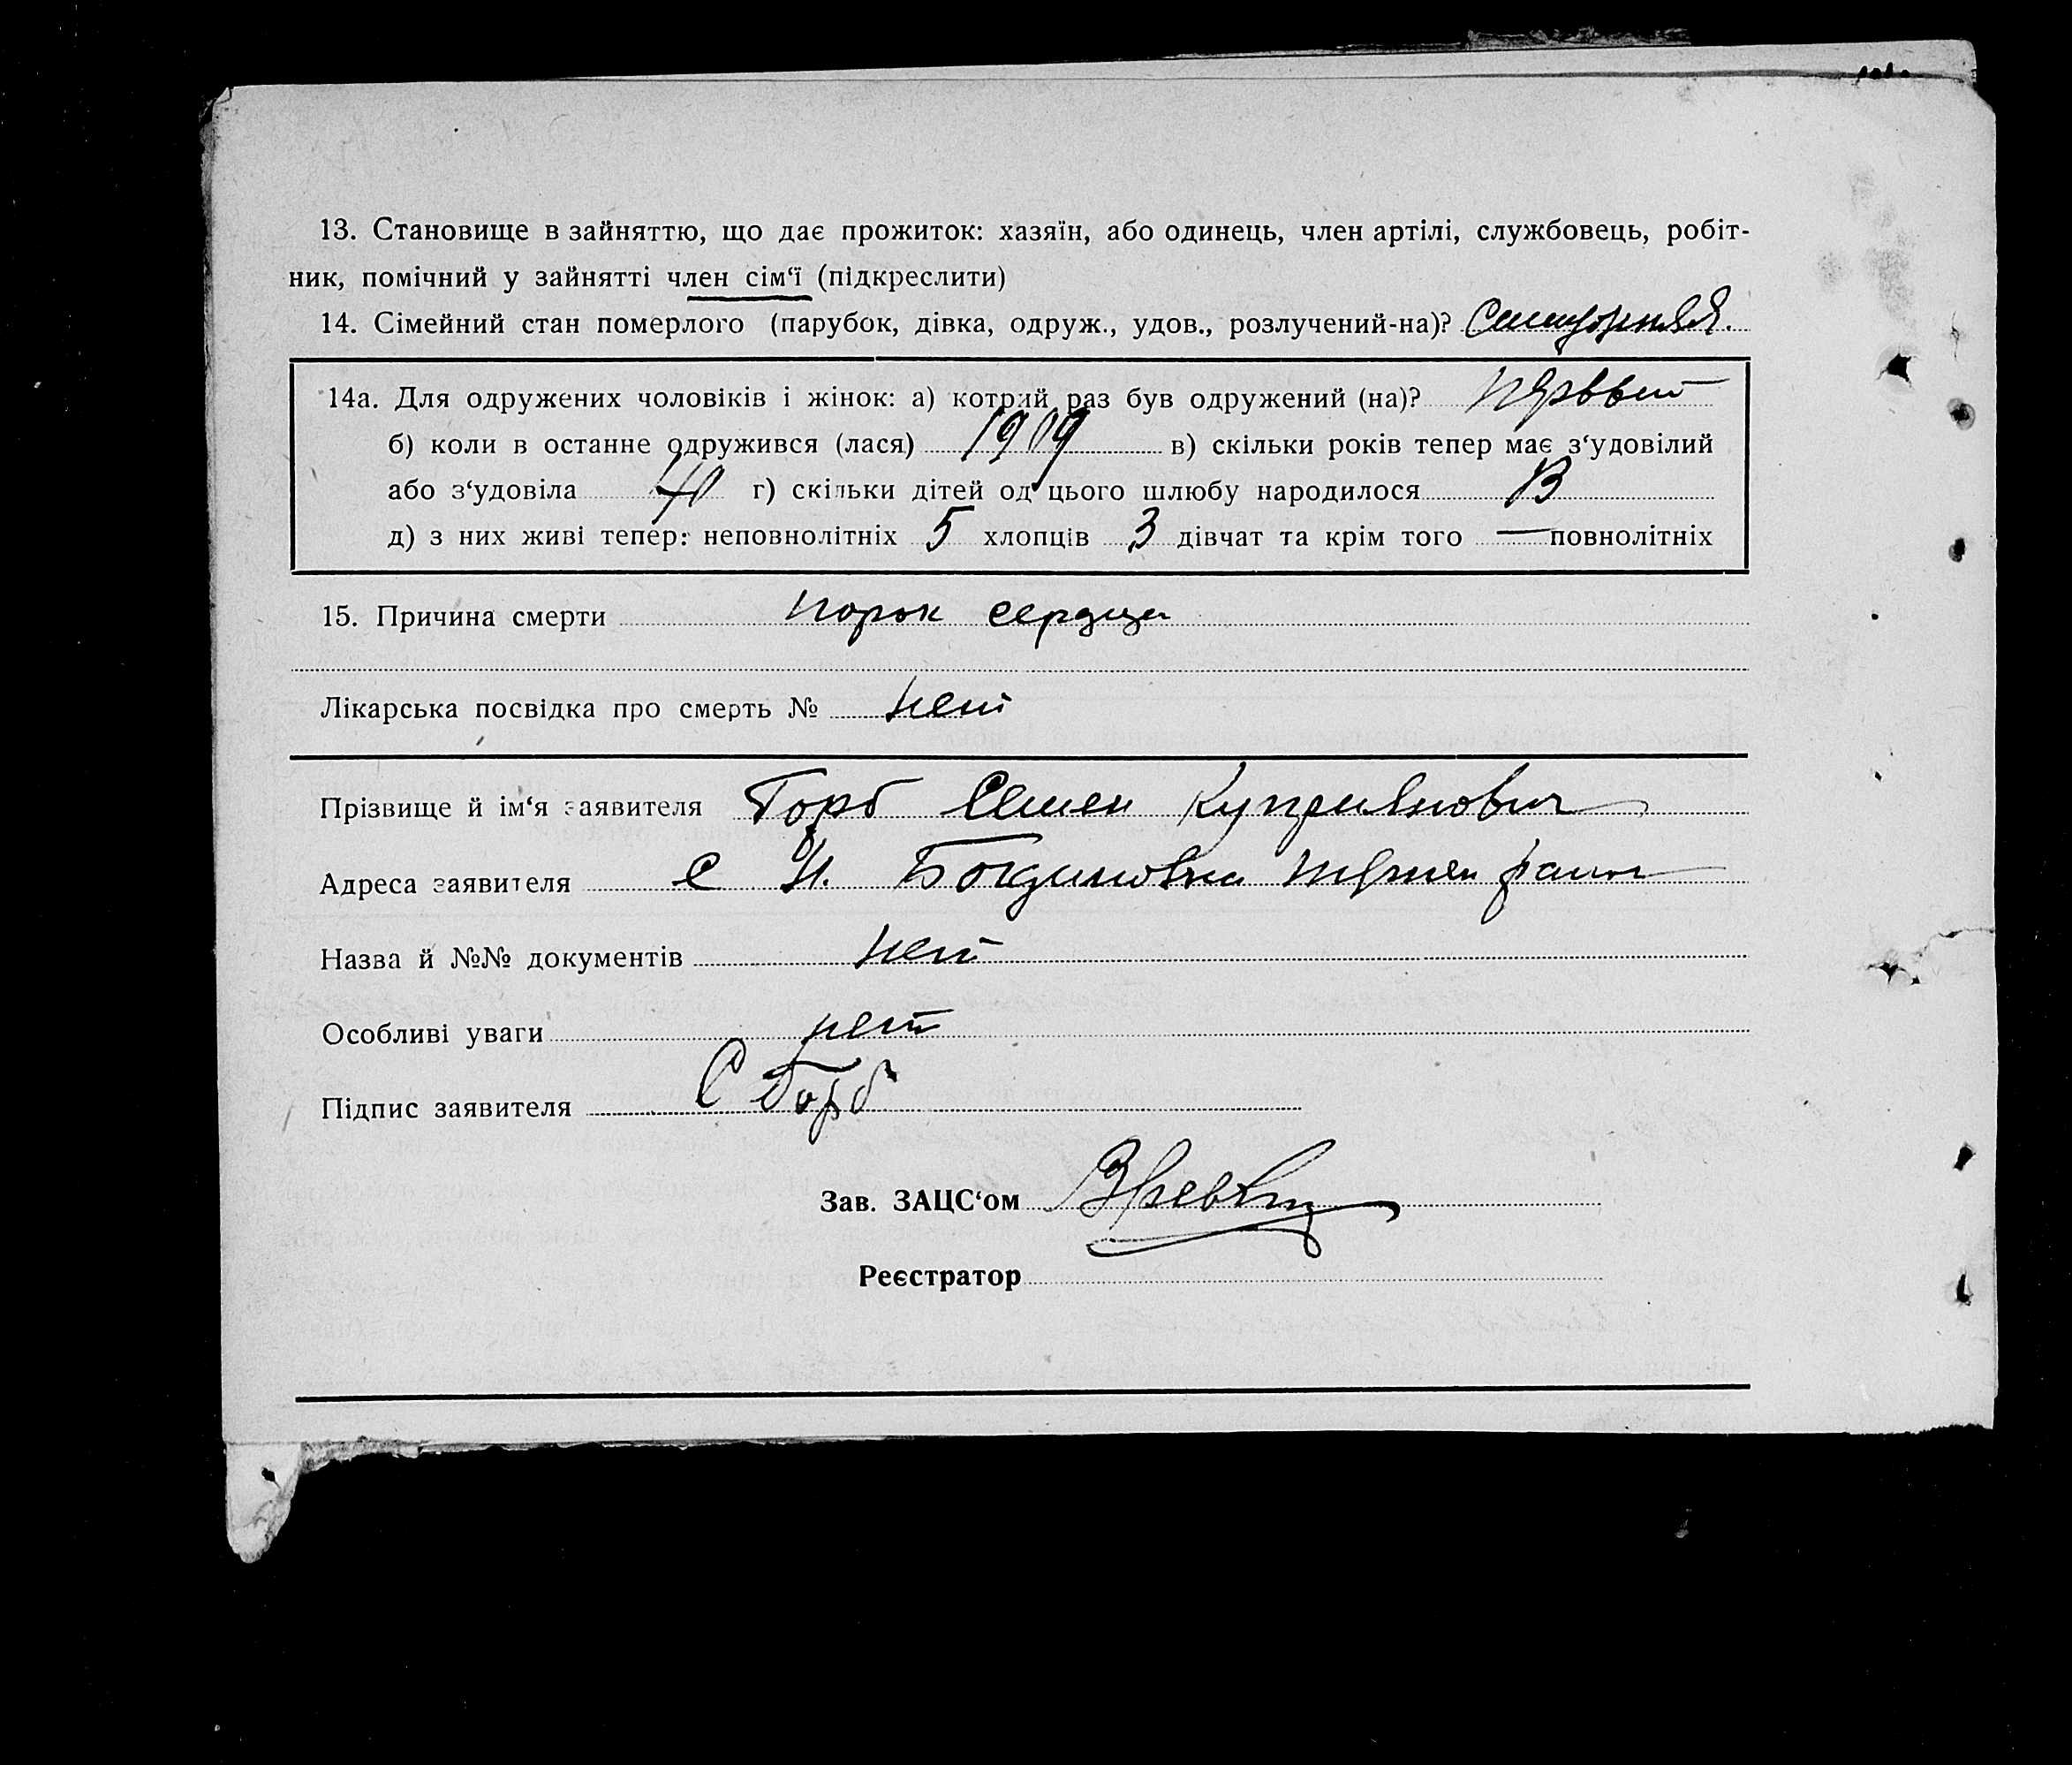 13. Становище в зайняттю, що дає прожиток: хазяїн, або одинець, член артілі, службовець, робіт-
ник, помічний у зайнятті член сім‘ї (підкреслити)
14. Сімейний стан померлого (парубок, дівка, одруж., удов., розлучений-на)?
14а. Для одружених чоловіків і жінок: а) котрий раз був одружений (на)? первый
б) коли в останне одружився (лася) 1909 в) скільки років тепер має з‘удовілий
або з‘удовіла г) скільки дітей од цього шлюбу народилося
д) з них живі тепер: неповнолітніх 5 хлопців 3 дівчат та крім того — повнолітніх
15. Причина смерти порок сердца
Лікарська посвідка про смерть № нет
Прізвище й ім‘я заявителя Горб Семен Куприянович
Адреса заявителя с Н. Богдановка
Назва й №№ документів нет
Особливі уваги нет
Підпис заявителя С Горб
Зав. ЗАЦС‘ом
Реєстратор